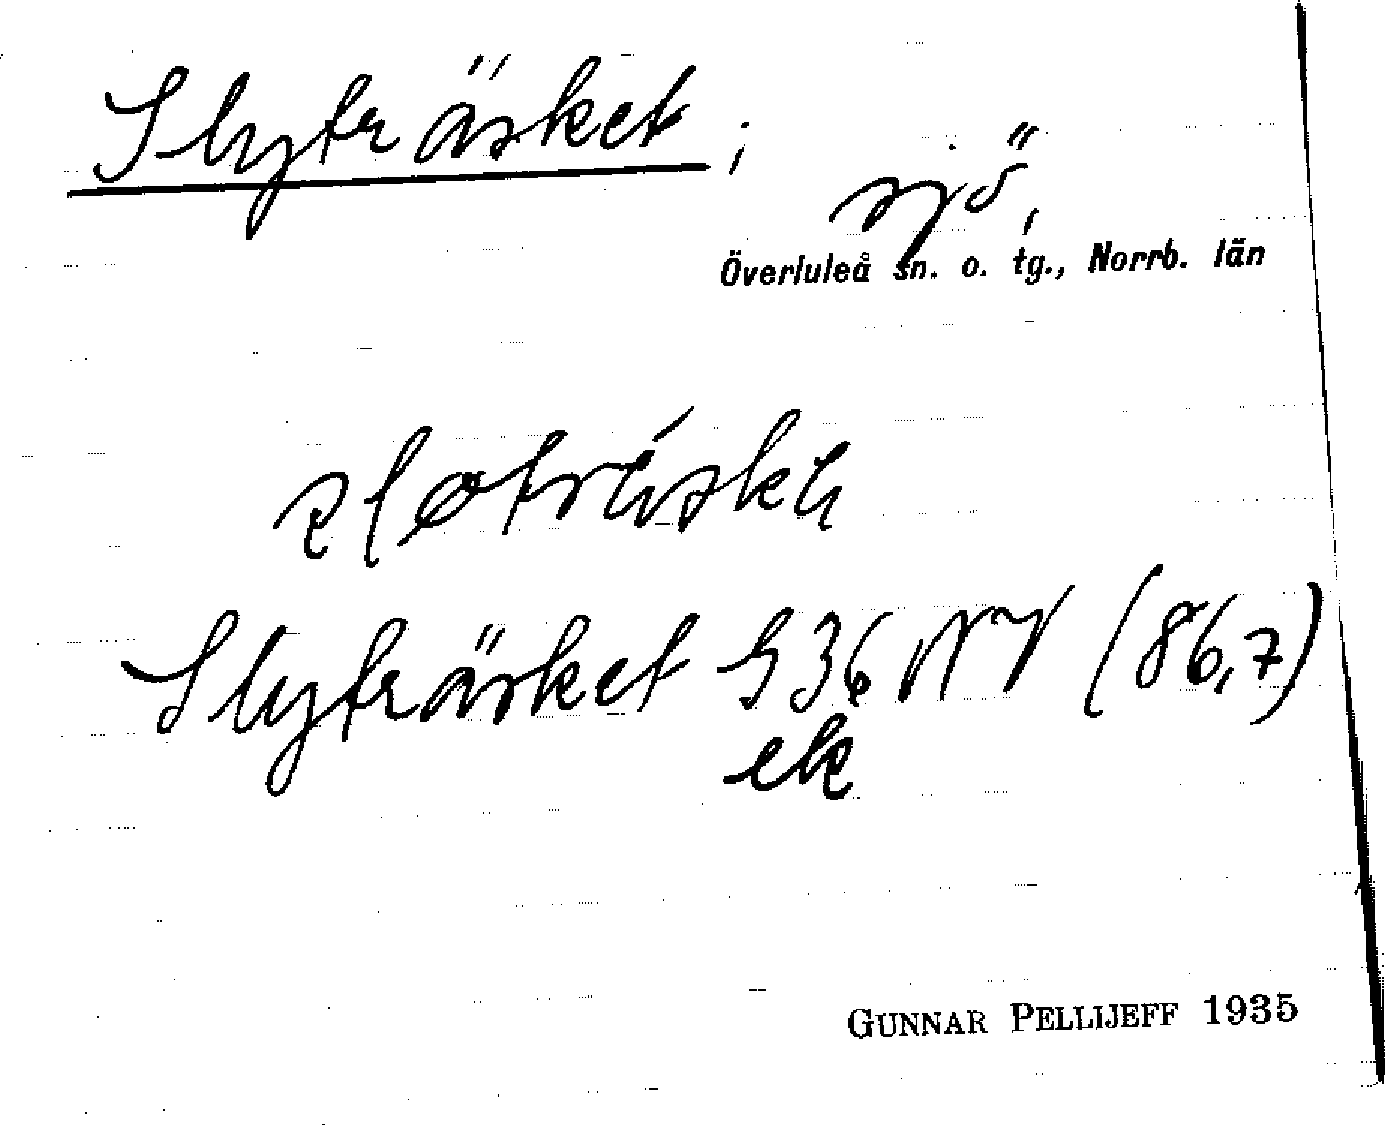 Slyträsket;
sjö,
Överluleå sn. o. tg., Norrb. län
Slyträsket G 36 NV (86,7)
ek
GUNNAR PELLIJEFF 1935